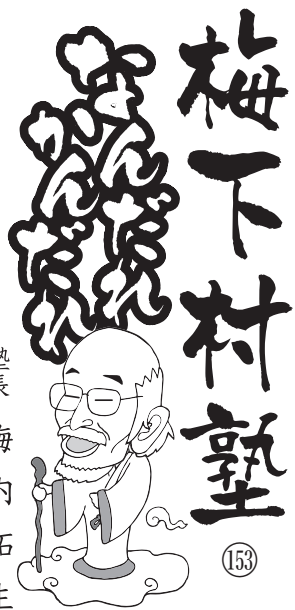 梅下村塾
153
なんだれ
かんだれ
塾長 梅内拓生